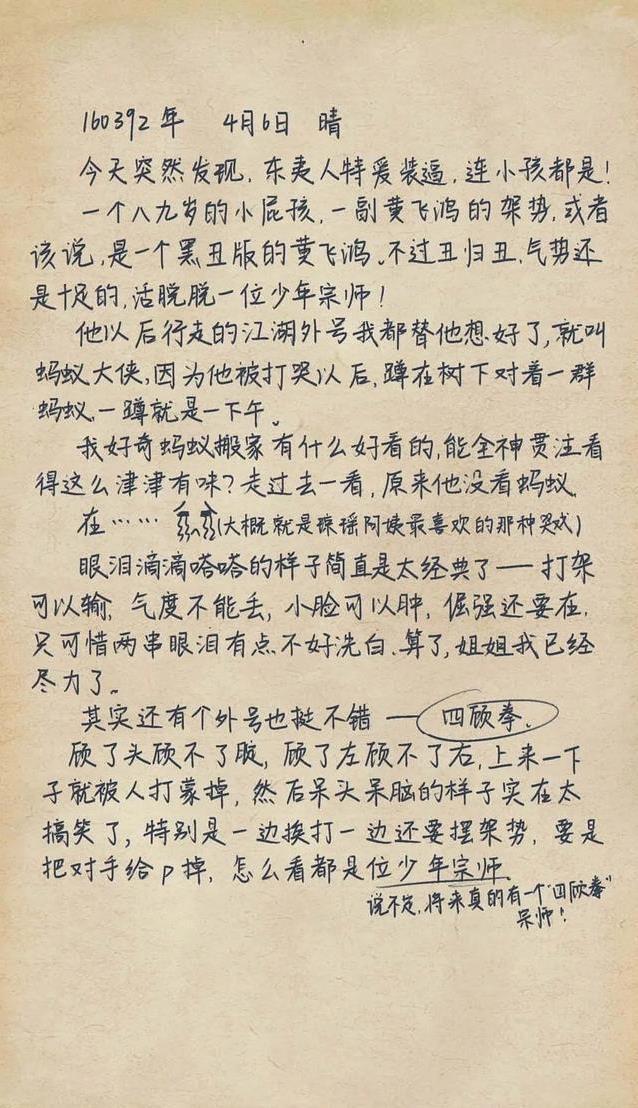 160392年 4月6日 晴
今天突然发现,东夷人特爱装逼,连小孩都是!
一个八九岁的小屁孩,一副黄飞鸿的架势,或者
该说,是一个黑丑版的黄飞鸿。不过丑归丑,气势还
是十足的,活脱脱一位少年宗师!
他以后行走的江湖外号我都替他想好了,就叫
蚂蚁大侠,因为他被打哭以后,蹲在树下对着一群
蚂蚁,一蹲就是一下午。
我好奇蚂蚁搬家有什么好看的,能全神贯注看
得这么津津有味?走过去一看,原来他没看蚂蚁,
在……(大概就是琼瑶阿姨最喜欢的那种哭戏)
眼泪滴滴嗒嗒的样子简直是太经典了——打架
可以输,气度不能丢,小脸可以肿,倔强还要在,
只可惜两串眼泪有点不好洗白、算了,姐姐我已经
尽力了。
其实还有个外号也挺不错——四顾拳.
顾了头顾不了腚,顾了左顾不了右,上来一下
子就被人打蒙掉,然后呆头呆脑的样子实在太
搞笑了,特别是一边挨打一边还要摆架势,要是
把对手给p掉,怎么看都是位少年宗师.
说不定,将来真的有一个"四顾拳"
宗师!